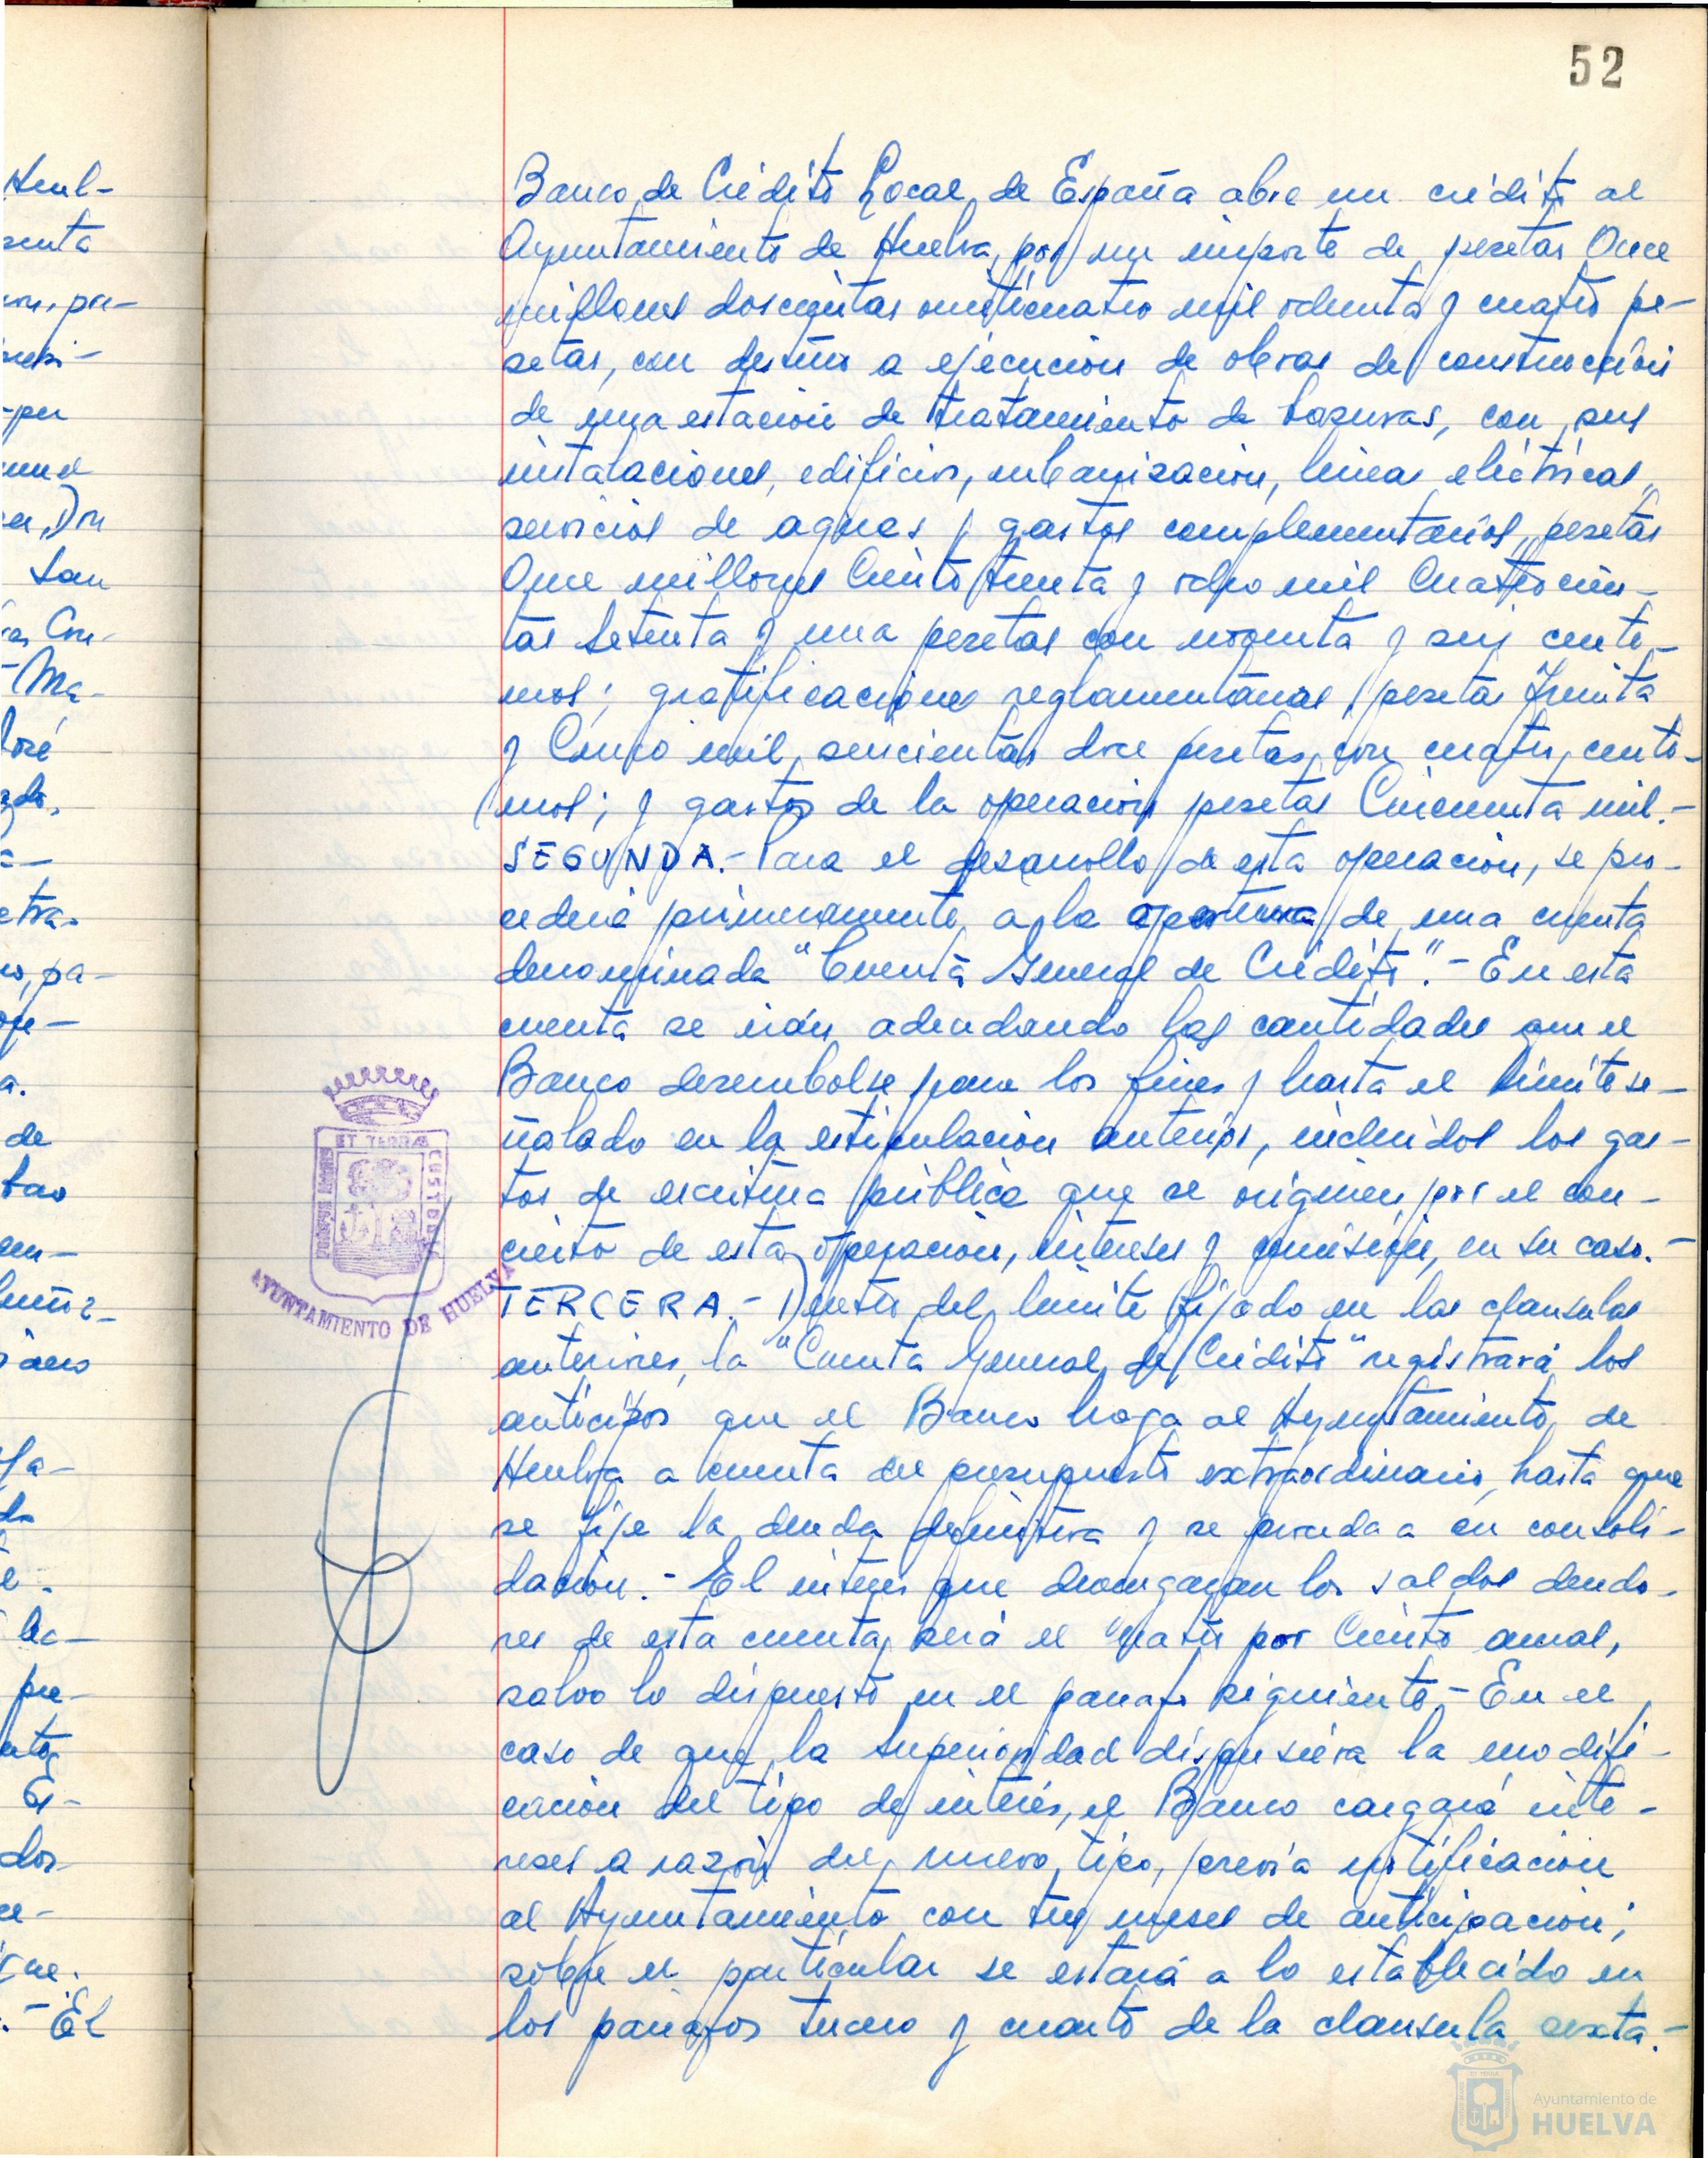 52
Banco de Crédito Local de España abre un crédito al
Ayuntamiento de Huelva, por un importe de pesetas Once
millones doscientas veinticuatro mil ochenta y cuatro pe-
setas, con destino a ejecución de obras de construcción
de una estación de tratamiento de basuras, con sus
instalaciones, edificios, urbanización, lineas eléctricas,
servicios de aguas y gastos complementarios, pesetas
Once millones Ciento treinta y ocho mil Cuatrocien-
tas Setenta y una pesetas con noventa y seis cénti-
mos; gratificaciones reglamentarias, pesetas Treinta
y Cinco mil seiscientas doce pesetas, con cuatro cénti-
mos; y gastos de la operación pesetas Cincuenta mil.-
SEGUNDA.- Para el desarrollo de esta operación, se pro-
cederá primeramente, a la apertura de una cuenta
denominada "Cuenta General de Crédito".- En esta
cuenta se irán adeudando las cantidades que el
Banco desembolse para los fines y hasta el límite se-
ñalado en la estipulación anterior, incluidos los gas-
tos de escritura pública que se originen por el con-
cierto de esta operación, intereses y comisión, en su caso.-
TERCERA.- Dentro del límite fijado en las clausulas
anteriores, la "Cuenta General de Crédito" registrará los
anticipos que el Banco haga al Ayuntamiento de
Huelva a cuenta del presupuesto extraordinario, hasta que
se fije la deuda definitiva y se proceda a su consoli-
dación.- El interés que devengaran los saldos deudo-
res de esta cuenta, será el cuatro por Ciento anual,
salvo lo dispuesto en el parrafo siguiente.- En el
caso de que la Superioridad dispusiera la modifi-
cación del tipo de interés, el Banco cargará inte-
reses a razón del nuevo tipo, previa notificación
al Ayuntamiento con tres meses de anticipación;
sobre el particular se estará a lo establecido en
los parrafos tercero y cuarto de la clausula sexta.-
ET TERRÆ
CUSTODIA
AYUNTAMIENTO DE HUELVA
Ayuntamiento de
HUELVA